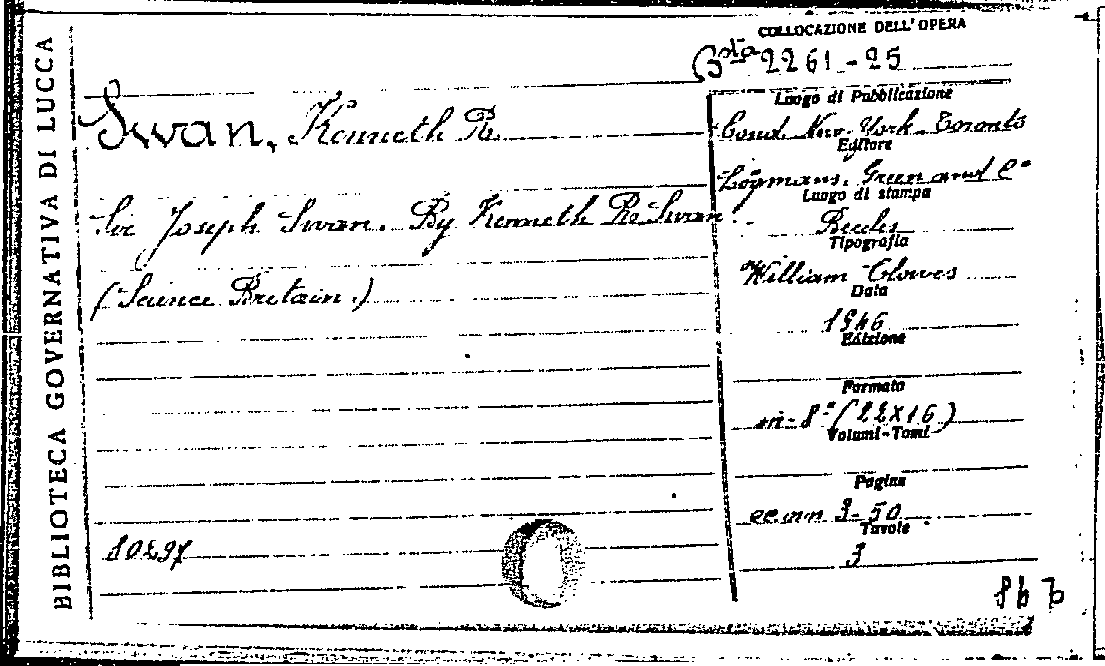 BIBLIOTECA GOVERNATIVA DI LUCCA
COLLOCAZIONE DELL'OPERA
Bta 2261-25
Swan, Kenneth R.
Sir Joseph Swan. By Kenneth R. Swan.
(Science Britain.)
80297
Luogo di Pubblicazione
Lond. New-York. Toronto
Editore
Longmans, Green and C°
Luogo di stampa
Beccles
Tipografia
William Clowes
Data
1946
Edizione
Formato
in-8° (22x16)
Volumi-Tomi
Pagine
3-50
Tavole
3